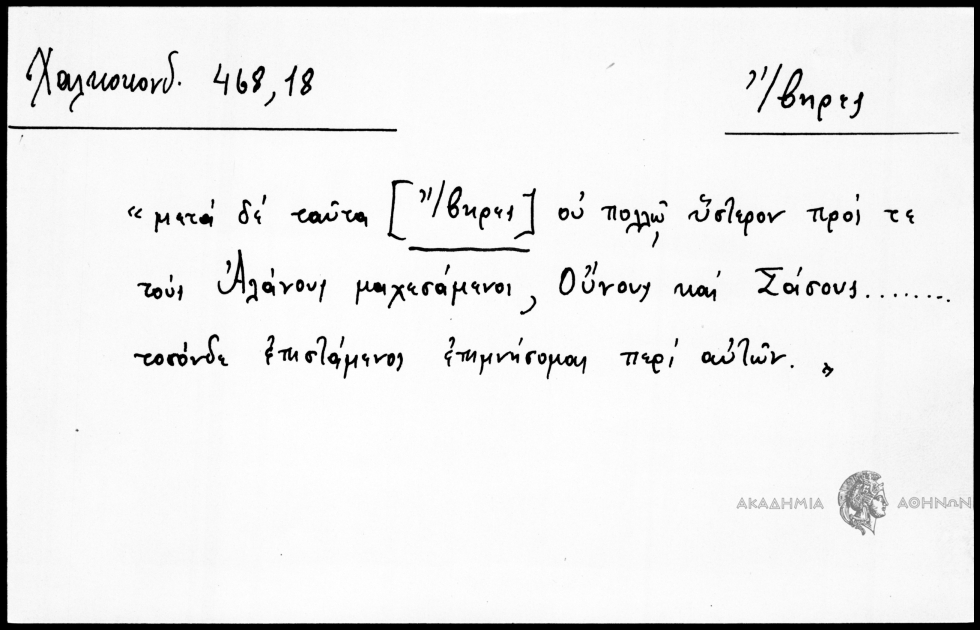 Χαλκοκονδ. 468,18
Ἴβηρες
« μετά δέ ταῦτα [Ἴβηρες] οὐ πολλῷ ὕστερον πρός τε
τούς Ἀλάνους μαχεσάμενοι, Οὔνους καί Σάσους........
τοσόνδε ἐπιστάμενος ἐπιμνήσομαι περί αὐτῶν. »
ΑΚΑΔΗΜΙΑ ΑΘΗΝΩΝ